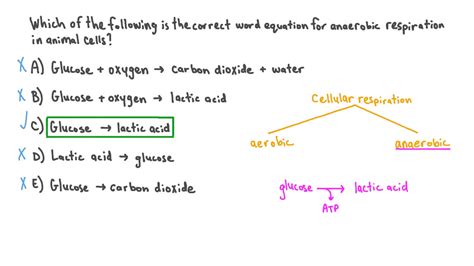 Which of the following is the correct word equation for anaerobic respiration
in animal cells?
A) Glucose + oxygen → carbon dioxide + water
B) Glucose + oxygen → lactic acid
C) Glucose → lactic acid
D) Lactic acid → glucose
E) Glucose → carbon dioxide
Cellular respiration
aerobic
anaerobic
glucose → lactic acid
ATP